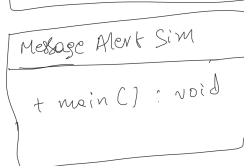 Message Alert Sim
+ main() : void